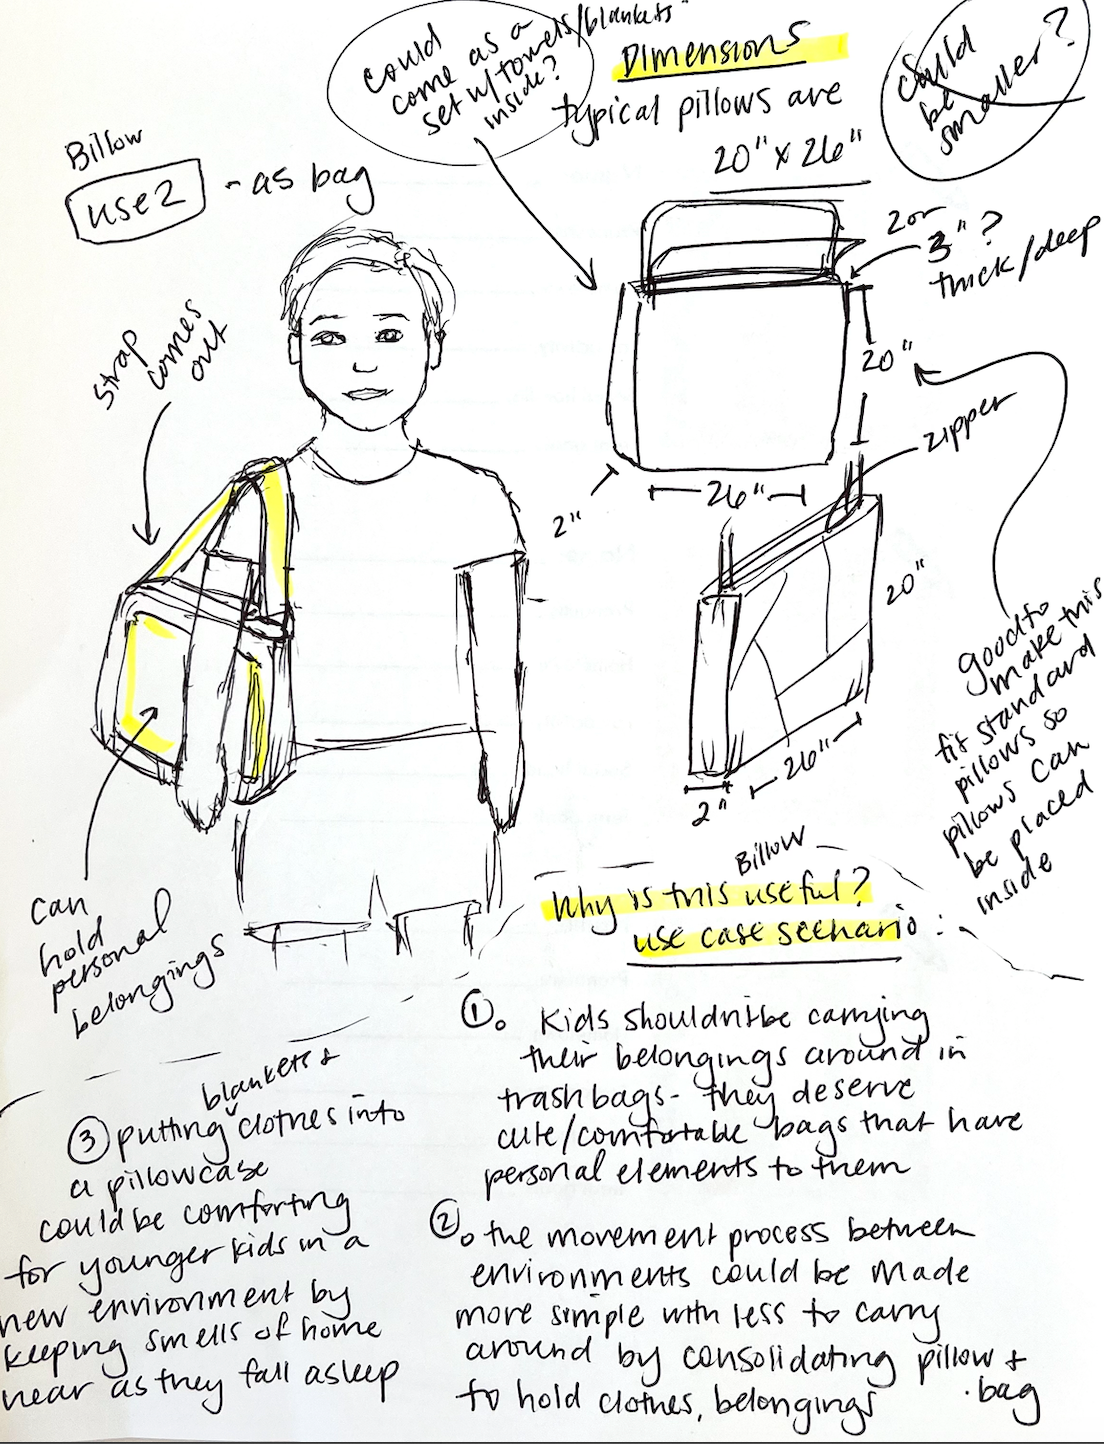 Could
come as a
set w/ towels/blankets
inside?
Dimensions
typical pillows are
20" x 26"
Could
be
smaller?
Billow
use 2 - as bag
2 or
3" ?
thick/deep
strap
comes
out
20"
zipper
26"
2"
20"
26"
2"
good to
make this
fit standard
pillows so
pillows can
be placed
inside
can
hold
personal
belongings
Billow
Why is this useful?
use case scenario:
1. Kids shouldn't be carrying
their belongings around in
trash bags - they deserve
cute/comfortable bags that have
personal elements to them
2. the movement process between
environments could be made
more simple with less to carry
around by consolidating pillow +
bag
to hold clothes, belongings
blankets +
3 putting clothes into
a pillowcase
could be comforting
for younger kids in a
new environment by
keeping smells of home
near as they fall asleep